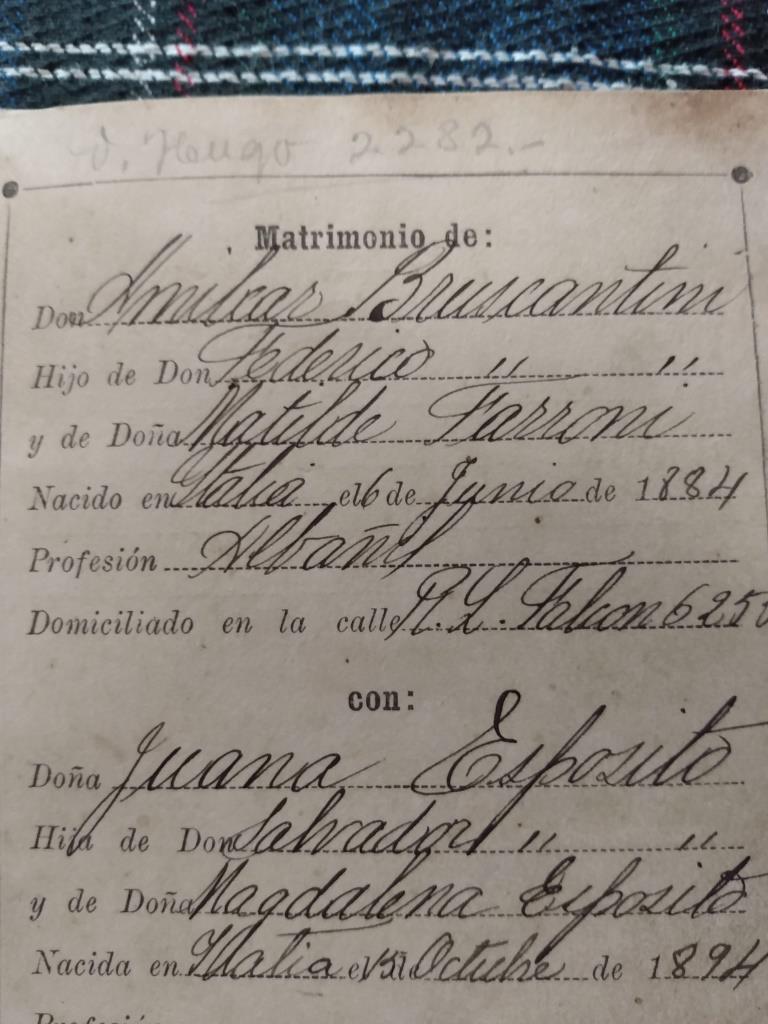 V. Hugo 2282.-
Matrimonio de:
Don Amilcar Bruscantini
Hijo de Don Federico " "
y de Doña Matilde Farroni
Nacido en Italia el 6 de Junio de 1884
Profesión Albañil
Domiciliado en la calle R. L. Falcon 6250
con:
Doña Juana Esposito
Hija de Don Salvador " "
y de Doña Magdalena Esposito
Nacida en Italia el de Octubre de 1894